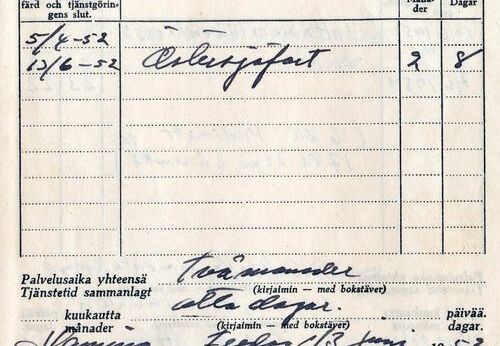 färd och tjänstgörin-
gens slut.
Måna-
der
Dagar
5/4-52
13/6-52 Östersjöfart 2 8
Palvelusaika yhteensä
Tjänstetid sammanlagt
två månader
(kirjaimin — med bokstäver)
kuukautta
månader
åtta dagar.
(kirjaimin — med bokstäver)
päivää.
dagar.
13 Juni 1952